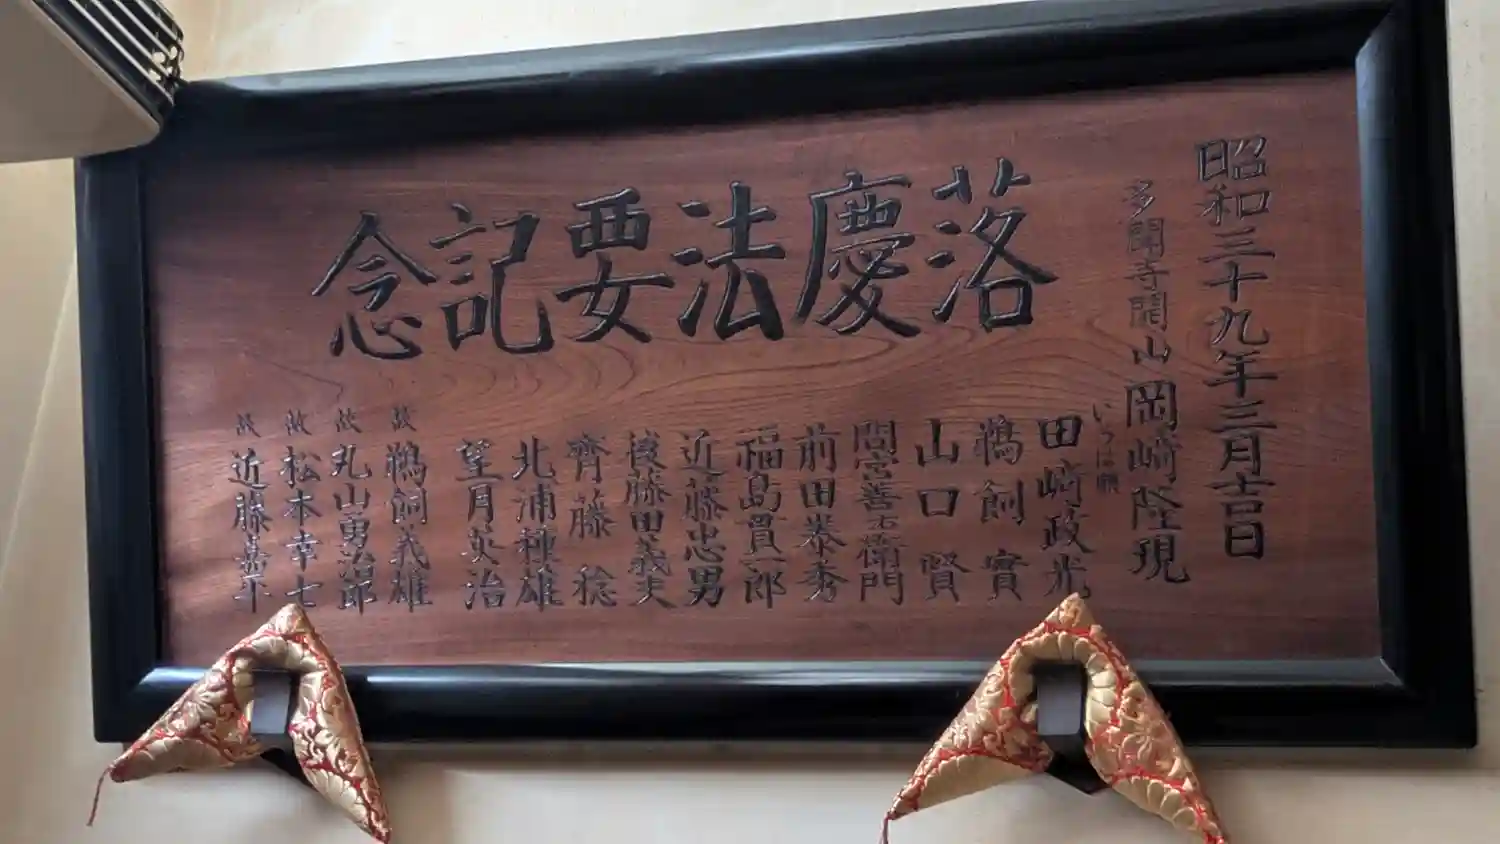 昭和三十九年三月十三日
多聞寺開山 岡崎隆現
落慶法要記念
田崎政光
鵜飼實
山口賢
間宮善右衛門
前田泰秀
福島貫一郎
近藤忠男
後藤田義夫
齊藤稔
北浦種雄
望月英治
故 鵜飼義雄
故 丸山勇治郎
故 松本幸七
故 近藤嘉平